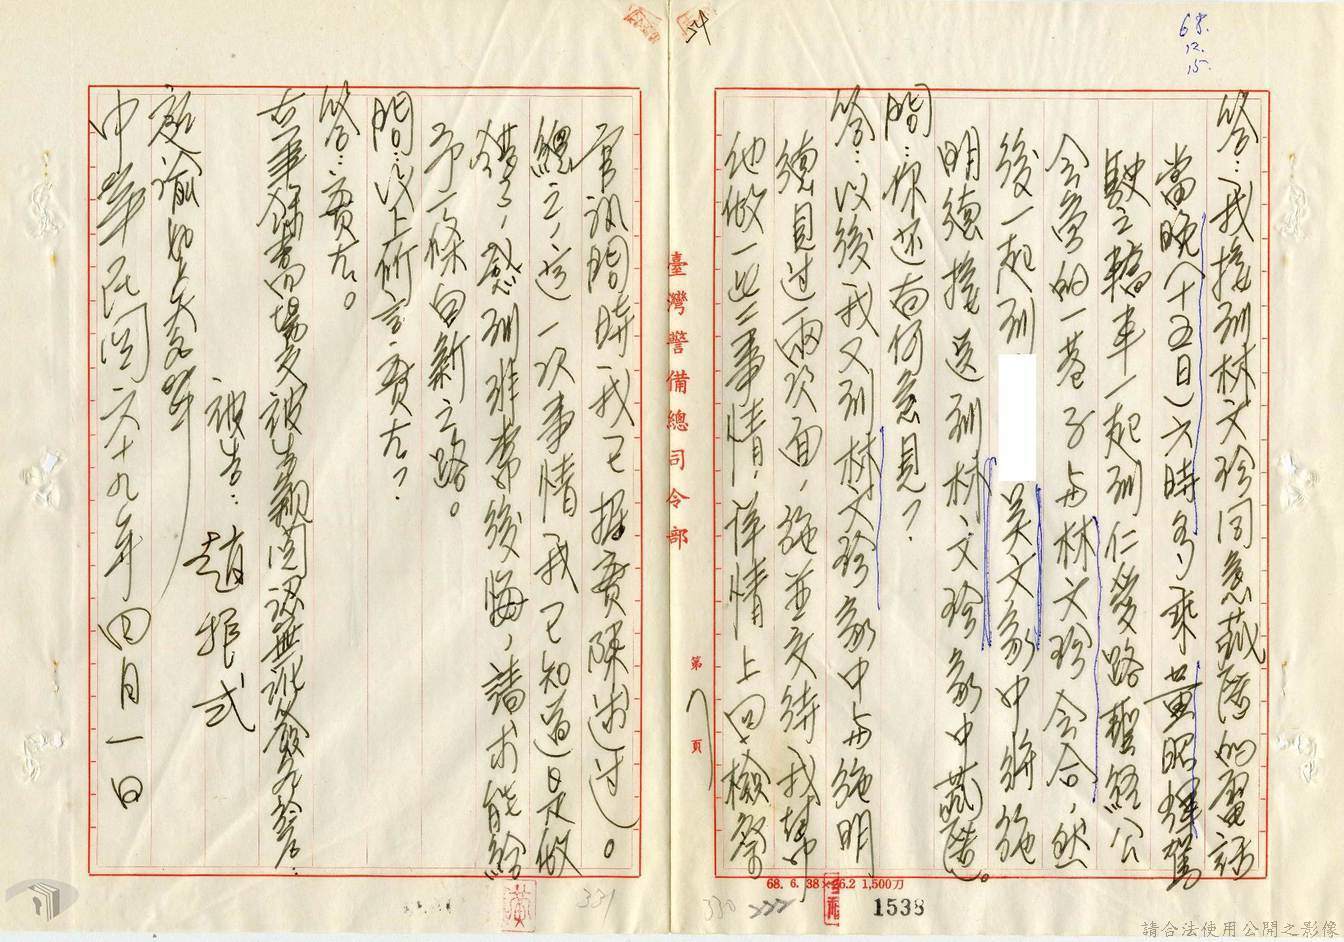 68.
12.
15.
54
答：我接到林文珍同意藏匿的電話
當晚（十五日）六時多乘黃昭輝駕
駛之轎車一起到仁愛路聖經公
會旁的一巷子與林文珍会合，然
後一起到
吳文家中將施
明德接送到林文珍家中藏匿。
問：你还有何意見？
答：以後我又到林文珍家中与施明
德見过兩次面，施並交待我幫
他做一些事情，詳情上回檢察
臺灣警備總司令部
第
7
頁
68. 6. 38×26.2 1,500刀
330
1538
官訊問時我已据實陳述过。
總之，这一次事情我已知道是做
錯了，感到非常後悔，請求能給
予一條自新之路。
問：以上所言實在？
答：實在。
右筆錄當場交被告親閱認無訛簽名於后：
被告：趙振貳
中華民國六十九年四月一日
331
請合法使用公開之影像